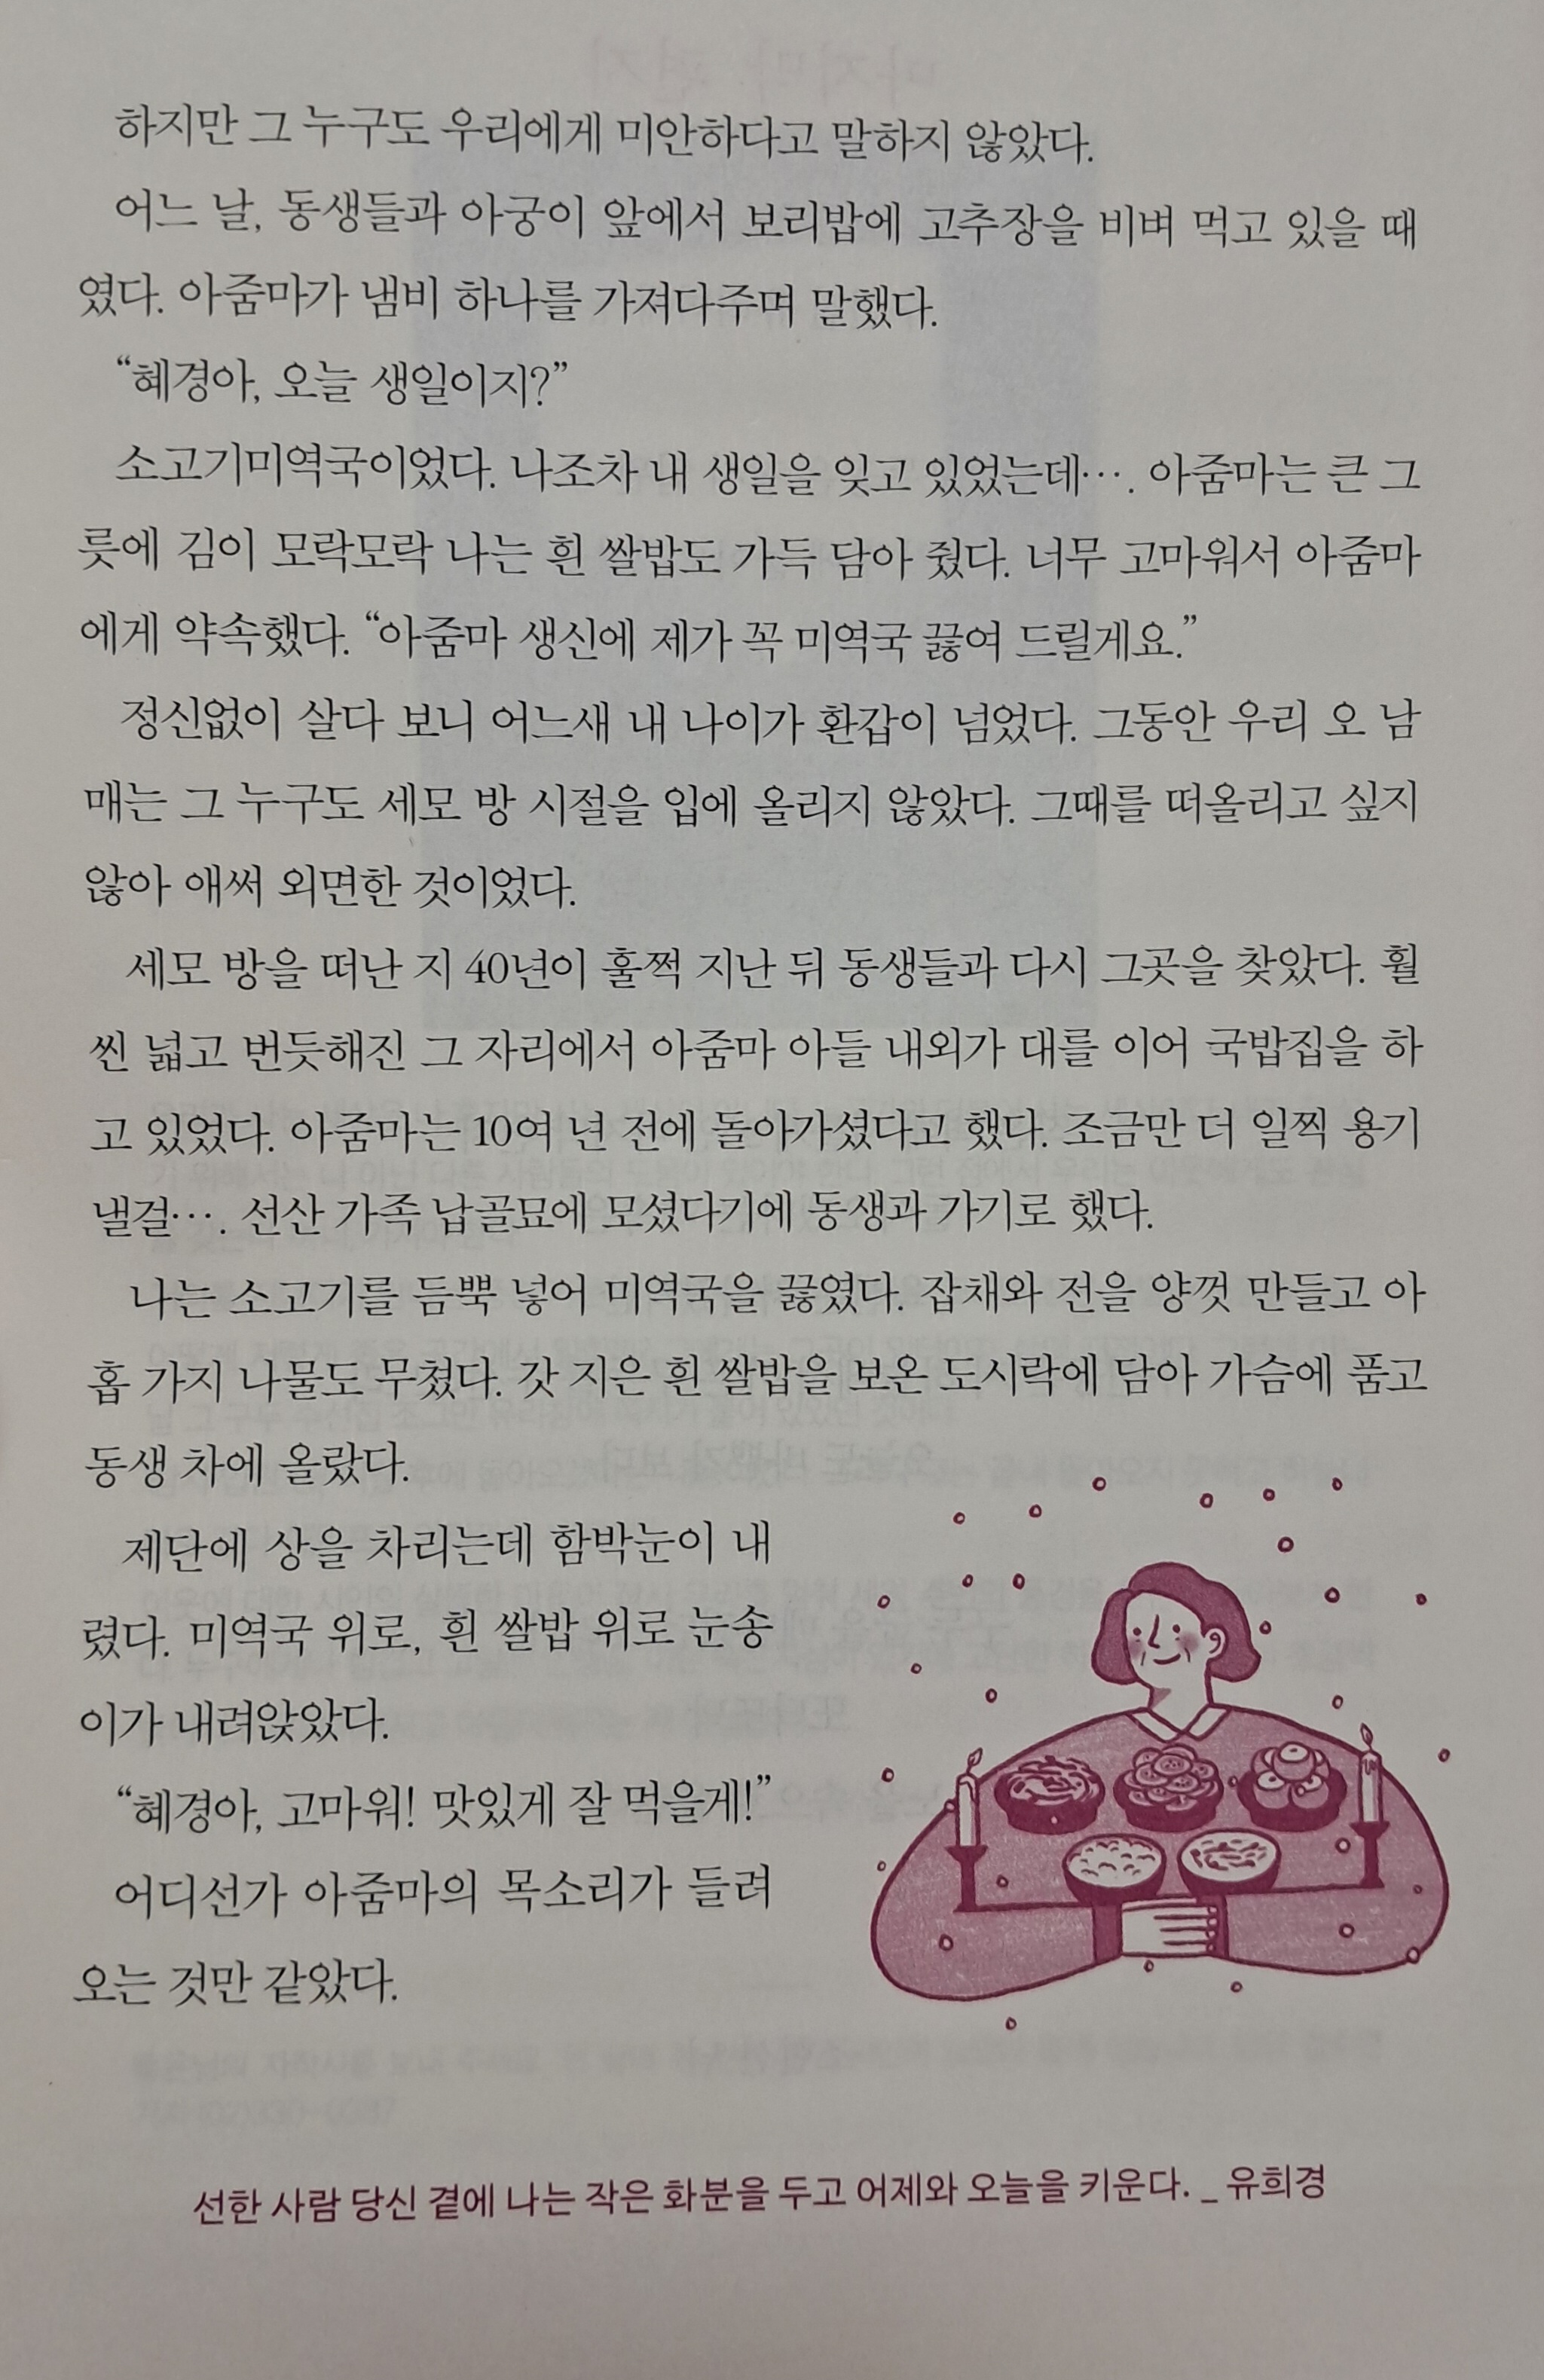 하지만 그 누구도 우리에게 미안하다고 말하지 않았다.
어느 날, 동생들과 아궁이 앞에서 보리밥에 고추장을 비벼 먹고 있을 때
였다. 아줌마가 냄비 하나를 가져다주며 말했다.
“혜경아, 오늘 생일이지?”
소고기미역국이었다. 나조차 내 생일을 잊고 있었는데…. 아줌마는 큰 그
릇에 김이 모락모락 나는 흰 쌀밥도 가득 담아 줬다. 너무 고마워서 아줌마
에게 약속했다. “아줌마 생신에 제가 꼭 미역국 끓여 드릴게요.”
정신없이 살다 보니 어느새 내 나이가 환갑이 넘었다. 그동안 우리 오 남
매는 그 누구도 세모 방 시절을 입에 올리지 않았다. 그때를 떠올리고 싶지
않아 애써 외면한 것이었다.
세모 방을 떠난 지 40년이 훌쩍 지난 뒤 동생들과 다시 그곳을 찾았다. 훨
씬 넓고 번듯해진 그 자리에서 아줌마 아들 내외가 대를 이어 국밥집을 하
고 있었다. 아줌마는 10여 년 전에 돌아가셨다고 했다. 조금만 더 일찍 용기
낼걸…. 선산 가족 납골묘에 모셨다기에 동생과 가기로 했다.
나는 소고기를 듬뿍 넣어 미역국을 끓였다. 잡채와 전을 양껏 만들고 아
홉 가지 나물도 무쳤다. 갓 지은 흰 쌀밥을 보온 도시락에 담아 가슴에 품고
동생 차에 올랐다.
제단에 상을 차리는데 함박눈이 내
렸다. 미역국 위로, 흰 쌀밥 위로 눈송
이가 내려앉았다.
“혜경아, 고마워! 맛있게 잘 먹을게!”
어디선가 아줌마의 목소리가 들려
오는 것만 같았다.
선한 사람 당신 곁에 나는 작은 화분을 두고 어제와 오늘을 키운다. _ 유희경